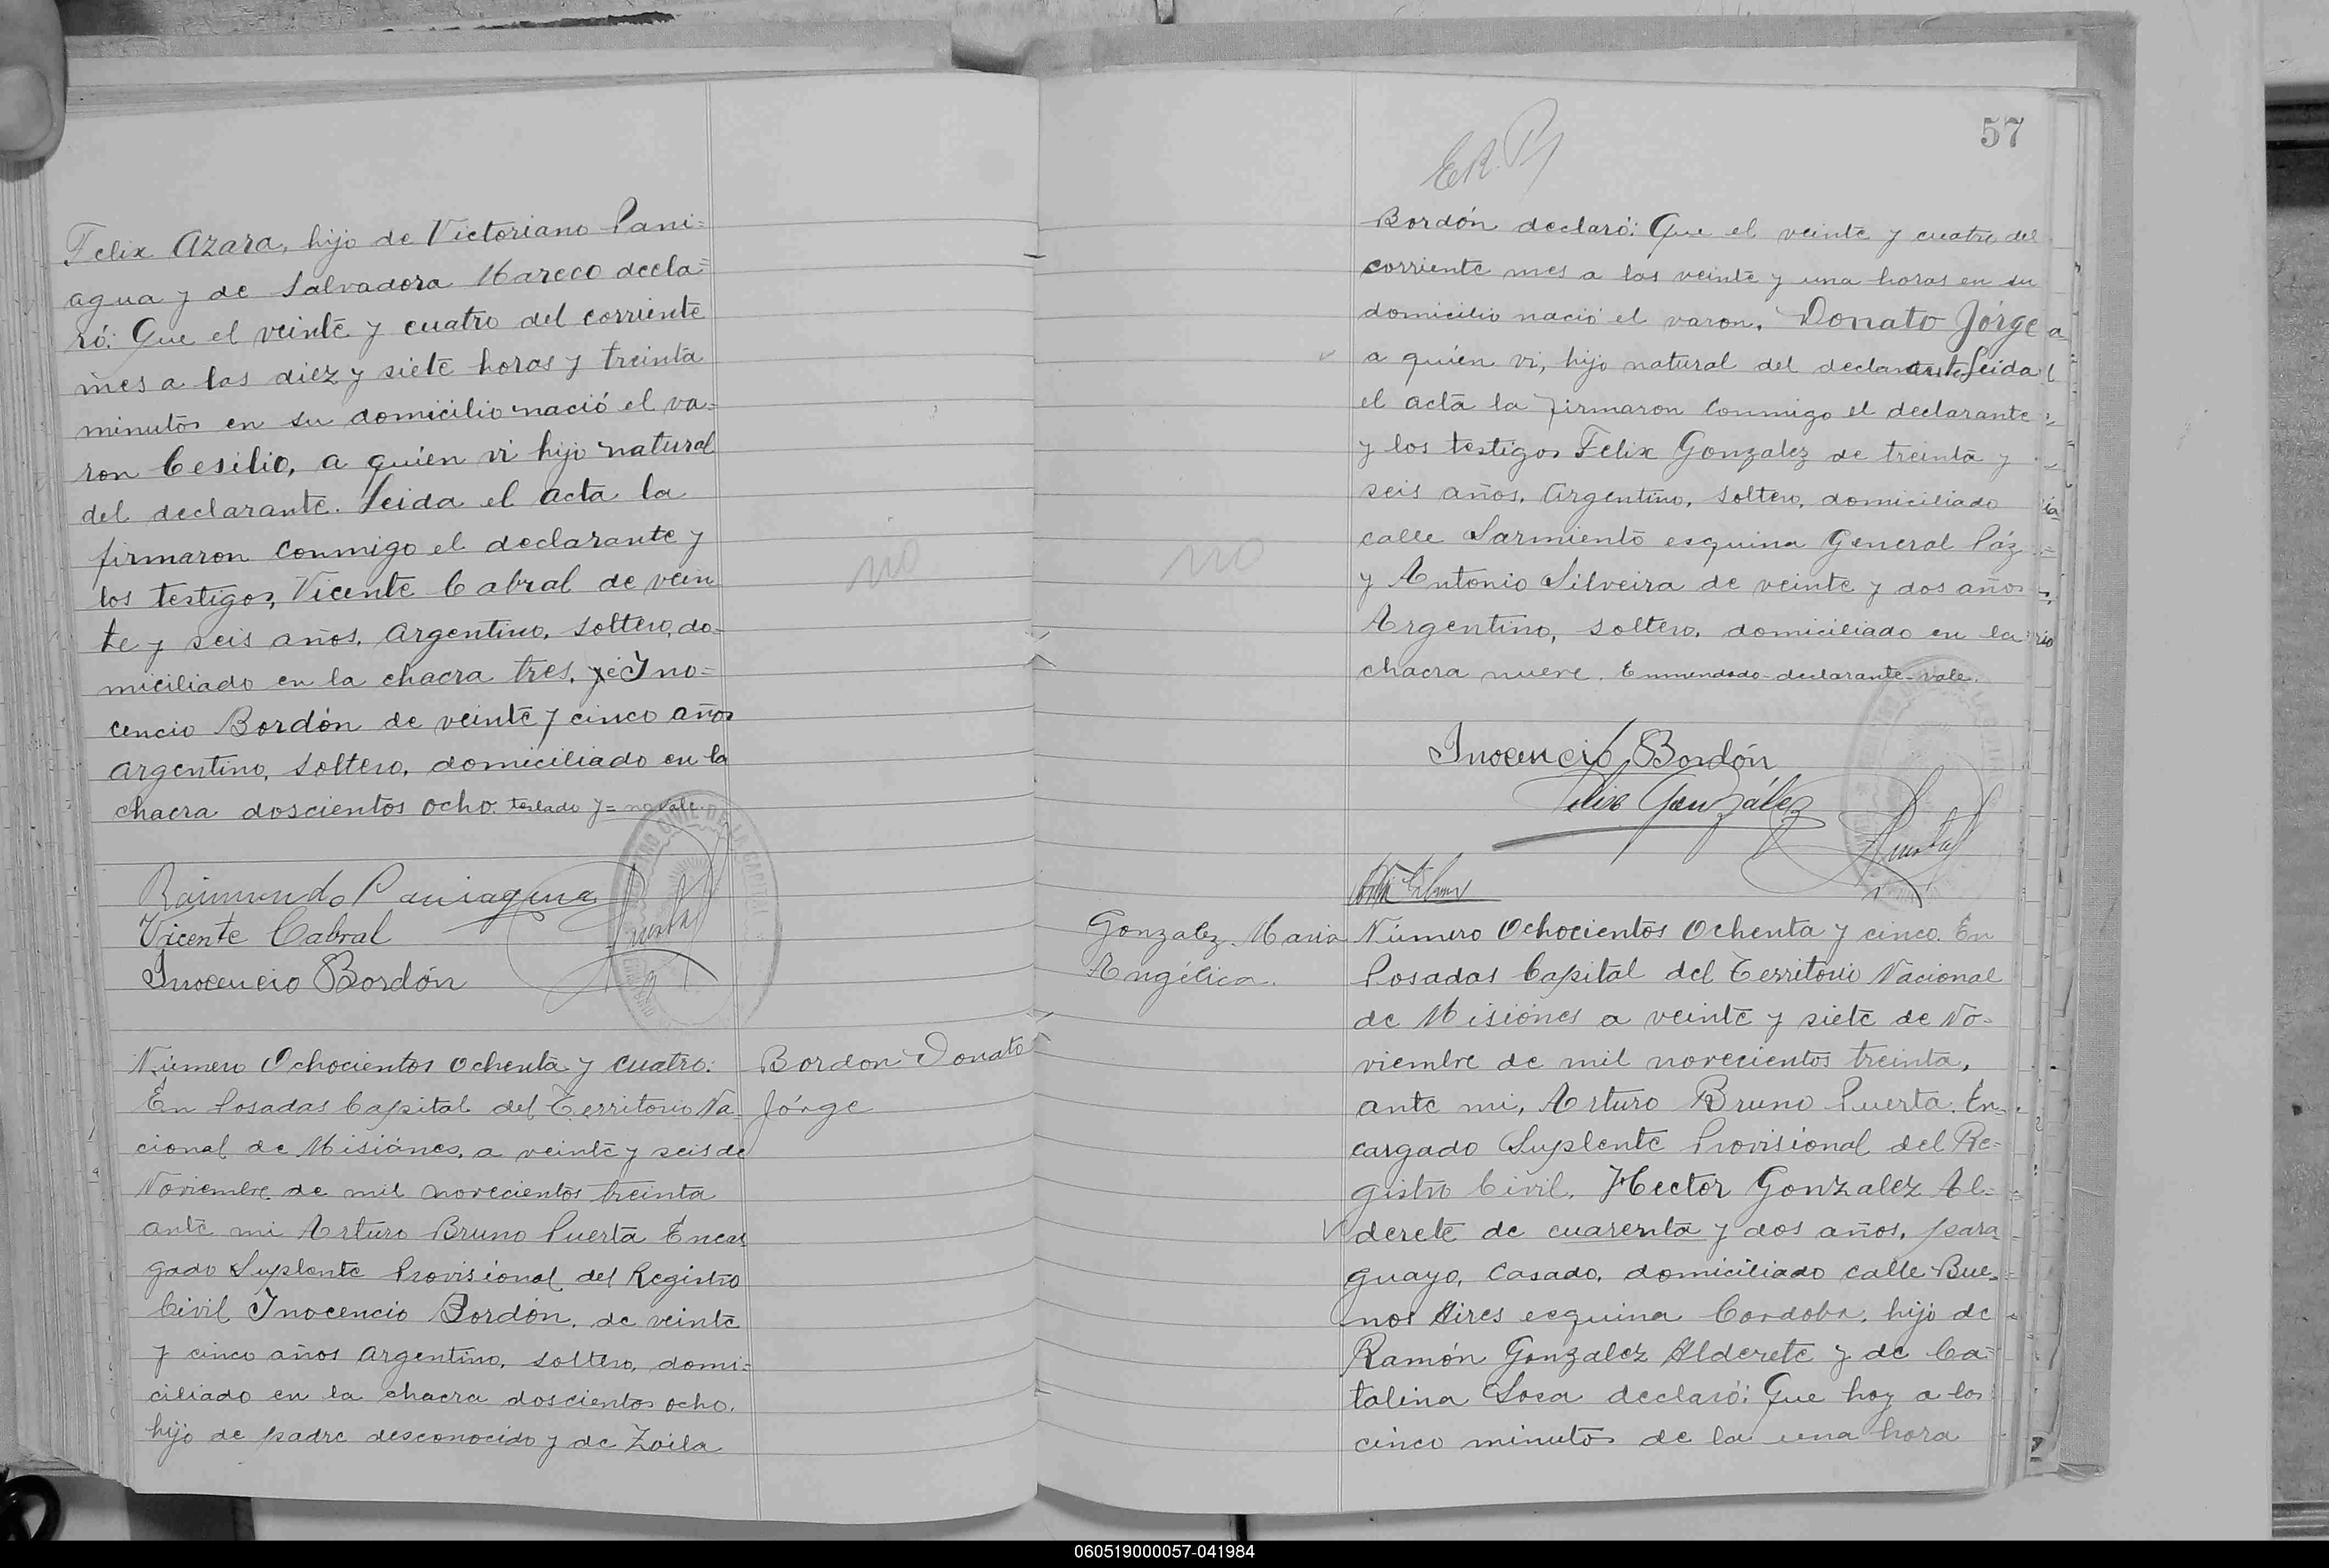 Felix Azara, hijo de Victoriano Pani=
agua y de Salvadora Mareco decla=
ró: Que el veinte y cuatro del corriente
mes a las diez y siete horas y treinta
minutos en su domicilio nació el va=
ron Cesilio, a quien vi hijo natural
del declarante. Leida el acta la
firmaron conmigo el declarante y
los testigos, Vicente Cabral de vein
te y seis años, Argentino, soltero, do=
miciliado en la chacra tres, y é Ino=
cencio Bordón de veinte y cinco años
argentino, soltero, domiciliado en la
chacra doscientos ocho. testado y= no vale.
Raimundo Paniagua
Vicente Cabral
Inocencio Bordón
no
Número Ochocientos Ochenta y cuatro:
En Posadas Capital del Territorio Na
cional de Misiónes, a veinte y seis de
Noviembre de mil novecientos treinta
ante mi Arturo Bruno Puerta Encar
gado Suplente Provisional del Registro
Civil Inocencio Bordón, de veinte
y cinco años argentino, soltero, domi=
ciliado en la chacra doscientos ocho,
hijo de padre desconocido y de Zoila
Bordon Donato
Jórge
57
E.R.P.
Bordón declaró: Que el veinte y cuatro del
corriente mes a las veinte y una horas en su
domicilio nació el varon, Donato Jórge
a quien vi, hijo natural del declarante Leida
el acta la firmaron conmigo el declarante
y los testigos Felix Gonzalez de treinta y
seis años, argentino, soltero, domiciliado
calle Sarmiento esquina General Páz
y Antonio Silveira de veinte y dos años
Argentino, soltero, domiciliado en la
chacra nueve. Enmendado-declarante-vale.
no
Inocencio Bordón
Felix González
Gonzalez Maria
Angélica.
Número Ochocientos Ochenta y cinco. En
Posadas Capital del Territorio Nacional
de Misiónes a veinte y siete de No-
viembre de mil novecientos treinta,
ante mi, Arturo Bruno Puerta. En-
cargado Suplente Provisional del Re-
gistro Civil, Hector Gonzalez Al=
derete de cuarenta y dos años, para
guayo, casado, domiciliado calle Bue=
nos Aires esquina Cordoba, hijo de
Ramón Gonzalez Alderete y de Ca=
talina Sosa declaró: Que hoy a los
cinco minutos de la una hora
060519000057-041984